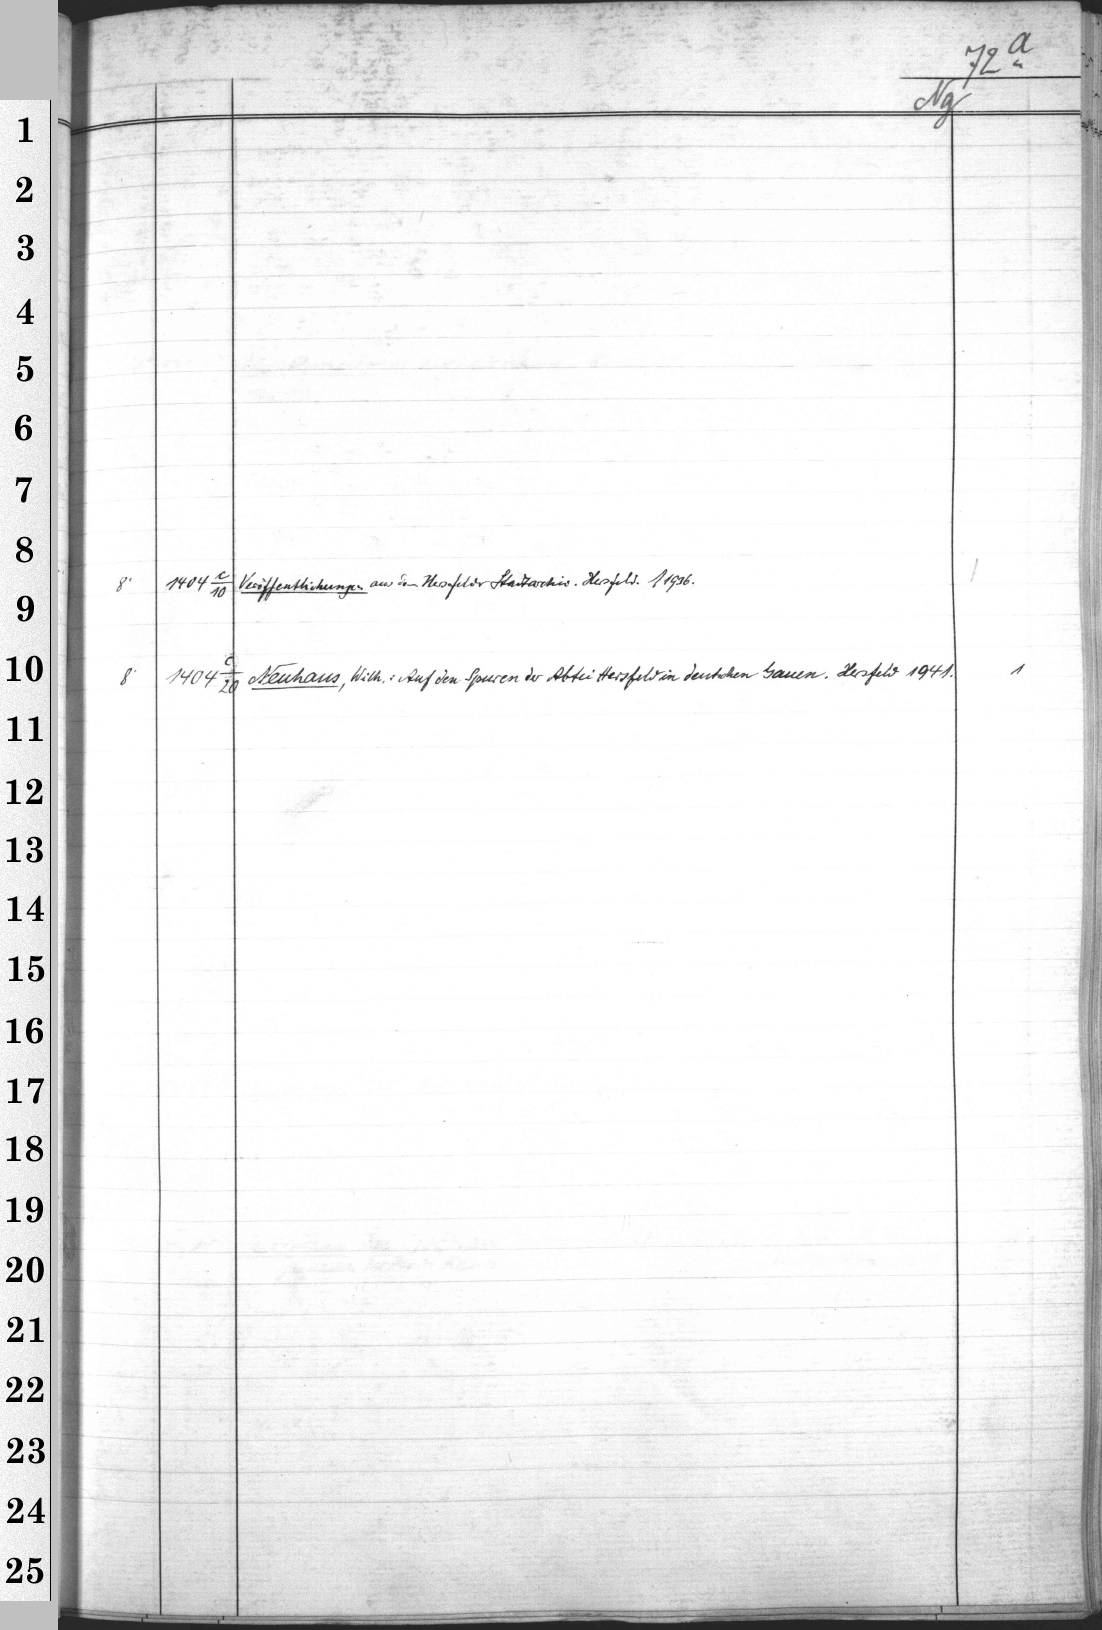 72 a
Ng
1
2
3
4
5
6
7
8
8° 1404 c/10 Veröffentlichungen aus dem Hersfelder Stadtarchiv. Hersfeld. 1 1936.
9
10
8° 1404 c/20 Neuhaus, Wilh.: Auf den Spuren der Abtei Hersfeld in deutschen Gauen. Hersfeld 1941. 1
11
12
13
14
15
16
17
18
19
20
21
22
23
24
25